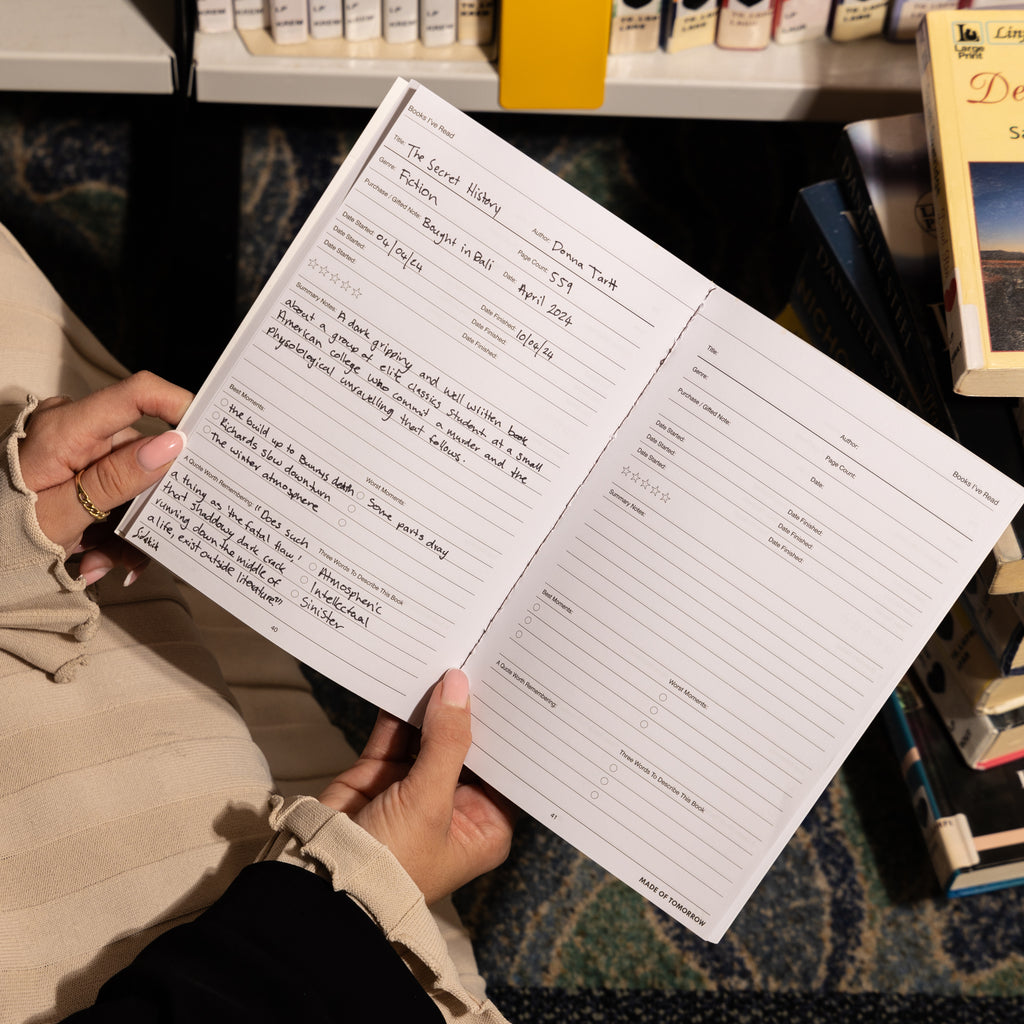 Books I've Read
Title: The Secret History
Author: Donna Tartt
Genre: Fiction
Page Count: 559
Purchase / Gifted Note: Bought in Bali
Date: April 2024
Date Started: 04/04/24
Date Finished: 10/04/24
Date Started:
Date Finished:
Date Started:
Date Finished:
Summary Notes: A dark gripping and well written book
about a group of elite classics student at a small
American college who commit a murder and the
physological unravelling that follows.
Best Moments:
the build up to Bunnys death
Richards slow downturn
The winter atmosphere
Worst Moments:
Some parts dray
A Quote Worth Remembering: "Does such
a thing as 'the fatal flaw,'
that shaddowy dark crack
running down the middle of
a life, exist outside
literature?"
Three Words To Describe This Book
Atmospheric
Intellectual
Sinister
40
Books I've Read
Title:
Author:
Genre:
Page Count:
Purchase / Gifted Note:
Date:
Date Started:
Date Finished:
Date Started:
Date Finished:
Date Started:
Date Finished:
Summary Notes:
Best Moments:
Worst Moments:
A Quote Worth Remembering:
Three Words To Describe This Book
41
MADE OF TOMORROW
LP
KREW
LP
KREW
LP
KREW
LP
KREW
Large
Print